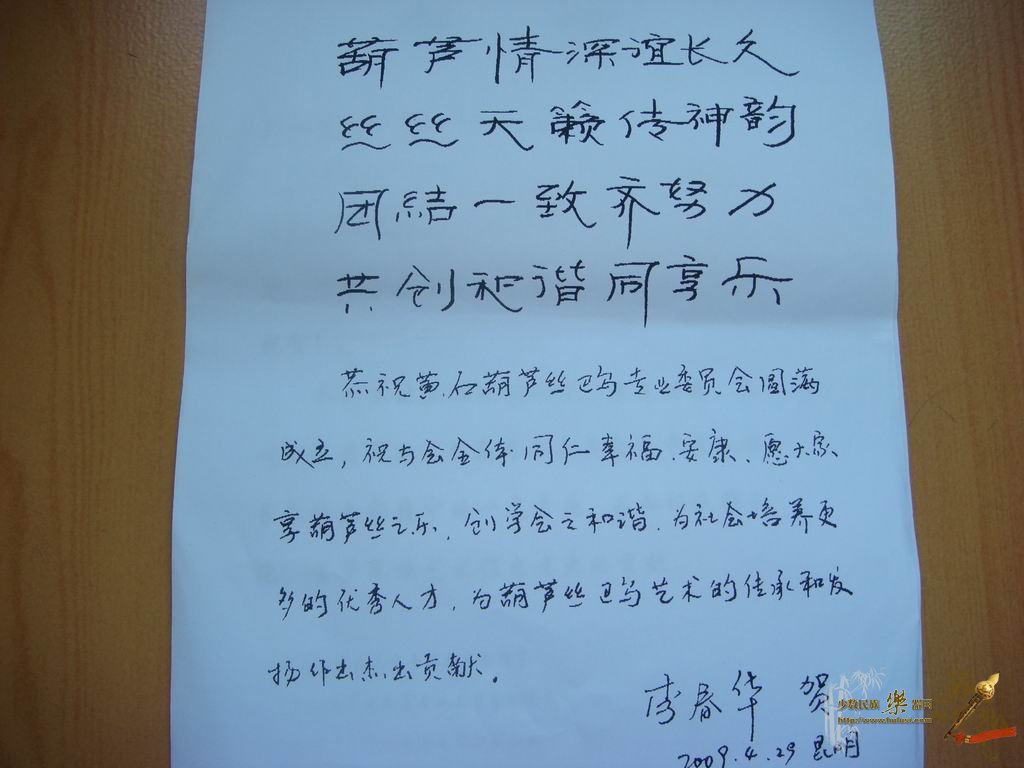 葫芦情深谊长久
丝丝天籁传神韵
团结一致齐努力
共创和谐同享乐
恭祝黄石葫芦丝巴乌专业委员会圆满
成立，祝与会全体同仁幸福、安康、愿大家
享葫芦丝之乐，创学会之和谐，为社会培养更
多的优秀人才，为葫芦丝巴乌艺术的传承和发
扬作出杰出贡献。
李春华 贺
2009.4.29 昆明
少数民族樂器网
http://www.hulusi.com